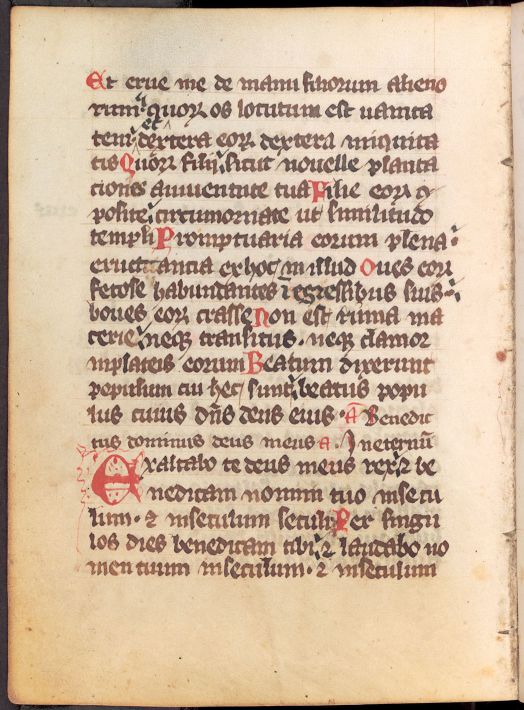 Et erue me de manu filiorum alieno
rum quorꝝ os locutum est uanita
tem et dextera eorꝝ dextera iniquita
tis Quorꝝ filii sicut nouelle planta
tiones in iuuentute sua Filie eorꝝ ꝯ
posite circumornate ut similitudo
templi Promptuaria eorum plena
eructantia ex hoc in illud Oues eorꝝ
fetose habundantes in egressibus suis
boues eorꝝ crasse Non est ruina ma
cerie neqꝫ transitus neqꝫ clamor
in plateis eorum Beatum dixerunt
populum cui hec sunt beatus popu
lus cuius dn̄s deus eius A Benedic
tus dominus deus meus A In eternū
Exaltabo te deus meus rex ⁊ be
nedicam nomini tuo in secu
lum ⁊ in seculum seculi Per singu
los dies benedicam tibi ⁊ laudabo no
men tuum in seculum ⁊ in seculum